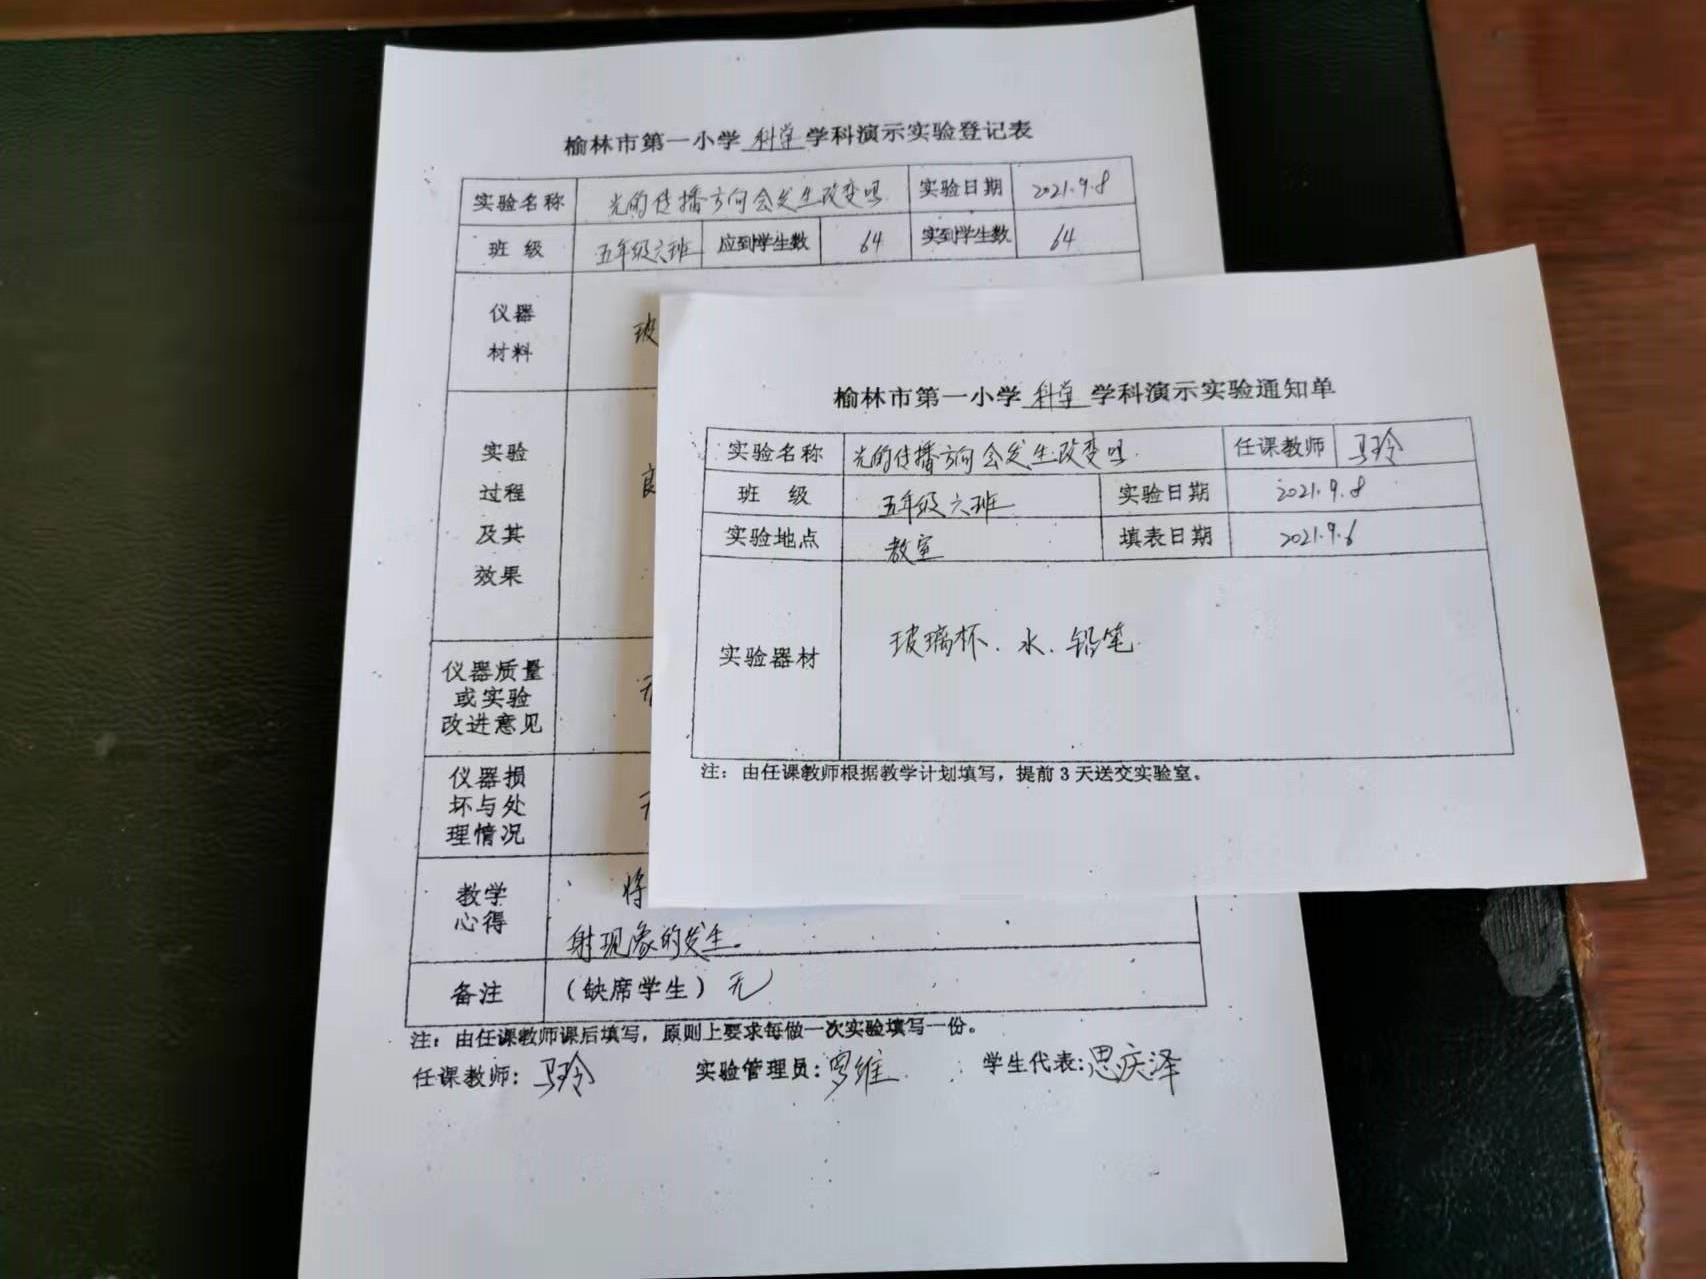 榆林市第一小学 科学 学科演示实验登记表
实验名称 光的传播方向会发生改变吗 实验日期 2021.9.8
班 级 五年级六班 应到学生数 64 实到学生数 64
仪器
材料
玻
实验
过程
及其
效果
仪器质量
或实验
改进意见
仪器损
坏与处
理情况
教学
心得
将
射现象的发生。
备注 (缺席学生) 无
注：由任课教师课后填写，原则上要求每做一次实验填写一份。
任课教师：马玲 实验管理员：罗维 学生代表：思庆泽
榆林市第一小学 科学 学科演示实验通知单
实验名称 光的传播方向会发生改变吗 任课教师 马玲
班 级 五年级六班 实验日期 2021.9.8
实验地点 教室 填表日期 2021.9.6
实验器材 玻璃杯、水、铅笔
注：由任课教师根据教学计划填写，提前3天送交实验室。